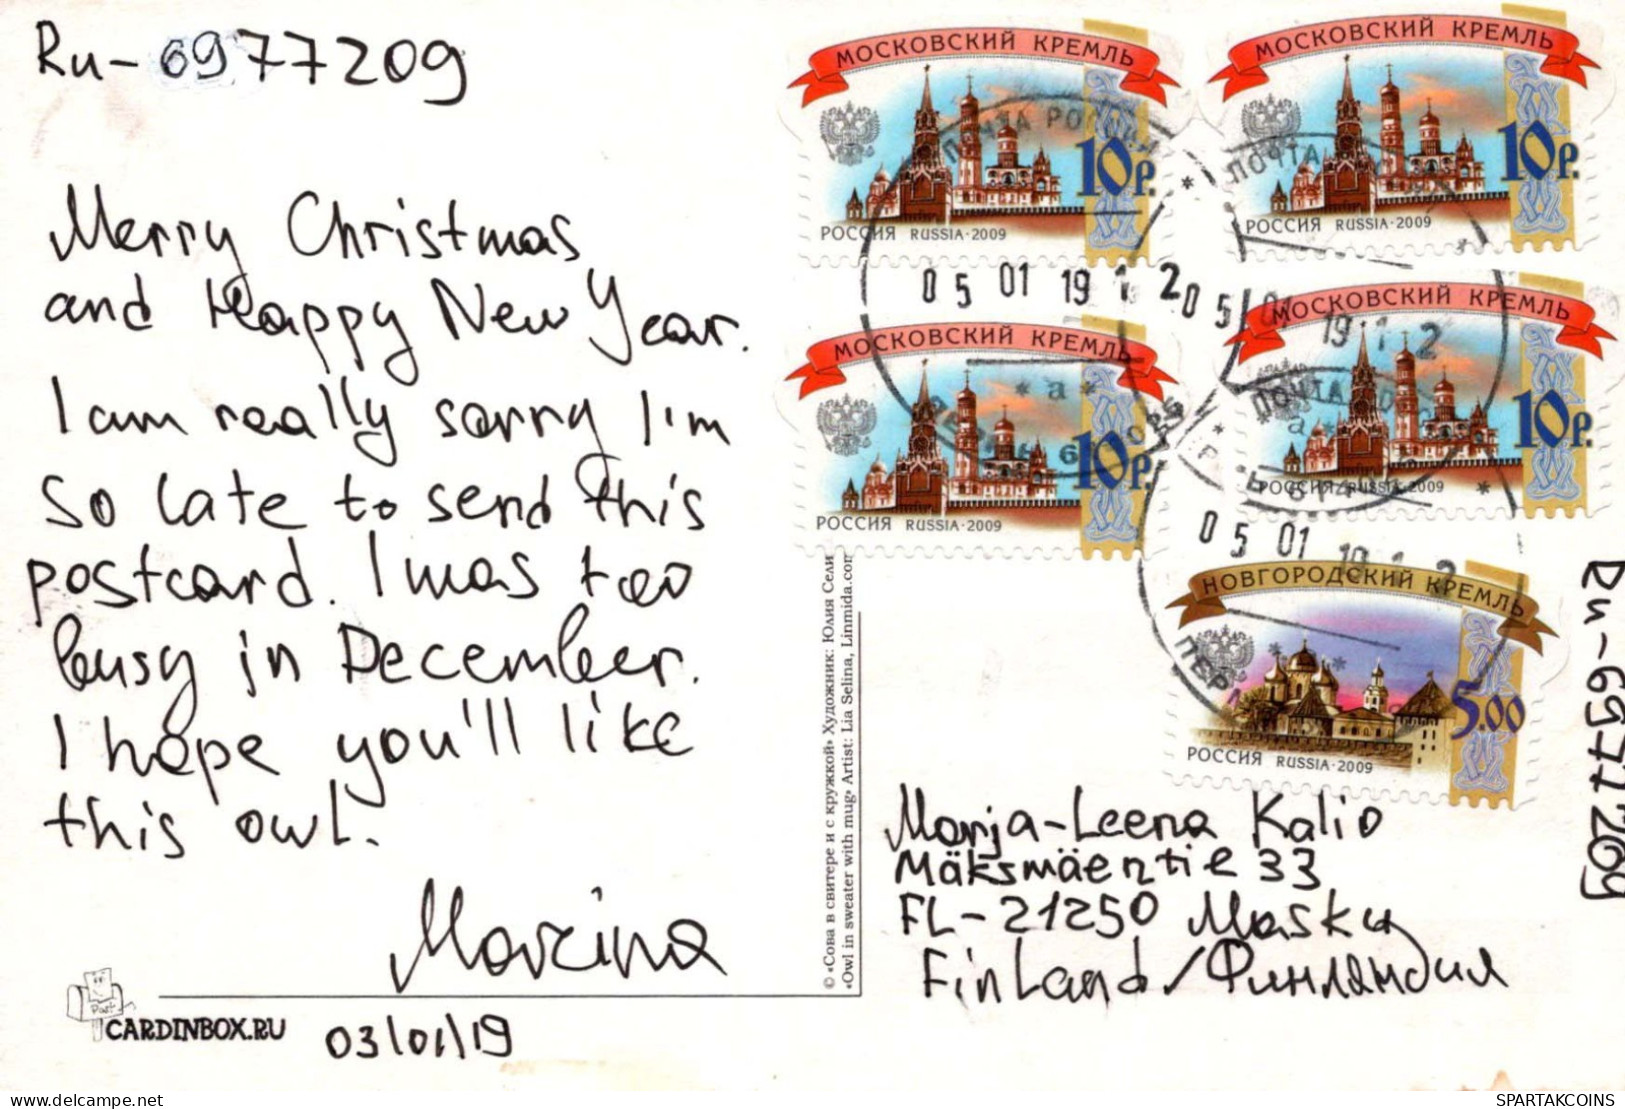 Ru-6977209
Merry Christmas
and Happy New Year.
I am really sorry I'm
so late to send this
postcard. I was too
busy in December.
I hope you'll like
this owl.
Marina
03/01/19
Post
CARDINBOX.RU
© «Сова в свитере и с кружкой» Художник: Юлия Сели
«Owl in sweater with mug» Artist: Lia Selina, Linmida.com
МОСКОВСКИЙ КРЕМЛЬ
10р.
РОССИЯ RUSSIA·2009
МОСКОВСКИЙ КРЕМЛЬ
10р.
РОССИЯ RUSSIA·2009
МОСКОВСКИЙ КРЕМЛЬ
10р.
РОССИЯ RUSSIA·2009
МОСКОВСКИЙ КРЕМЛЬ
10р.
РОССИЯ RUSSIA·2009
НОВГОРОДСКИЙ КРЕМЛЬ
5.00
РОССИЯ RUSSIA·2009
ПОЧТА РОССИИ
05 01 19 1 2
ПОЧТА
05 01
19 1 2
ПОЧТА
05 01 19 1 2
Marja-Leena Kalio
Mäksmäentie 33
FL-21250 Masku
Finland/Финляндия
Ru-6977209
SPARTAKCOINS
www.delcampe.net